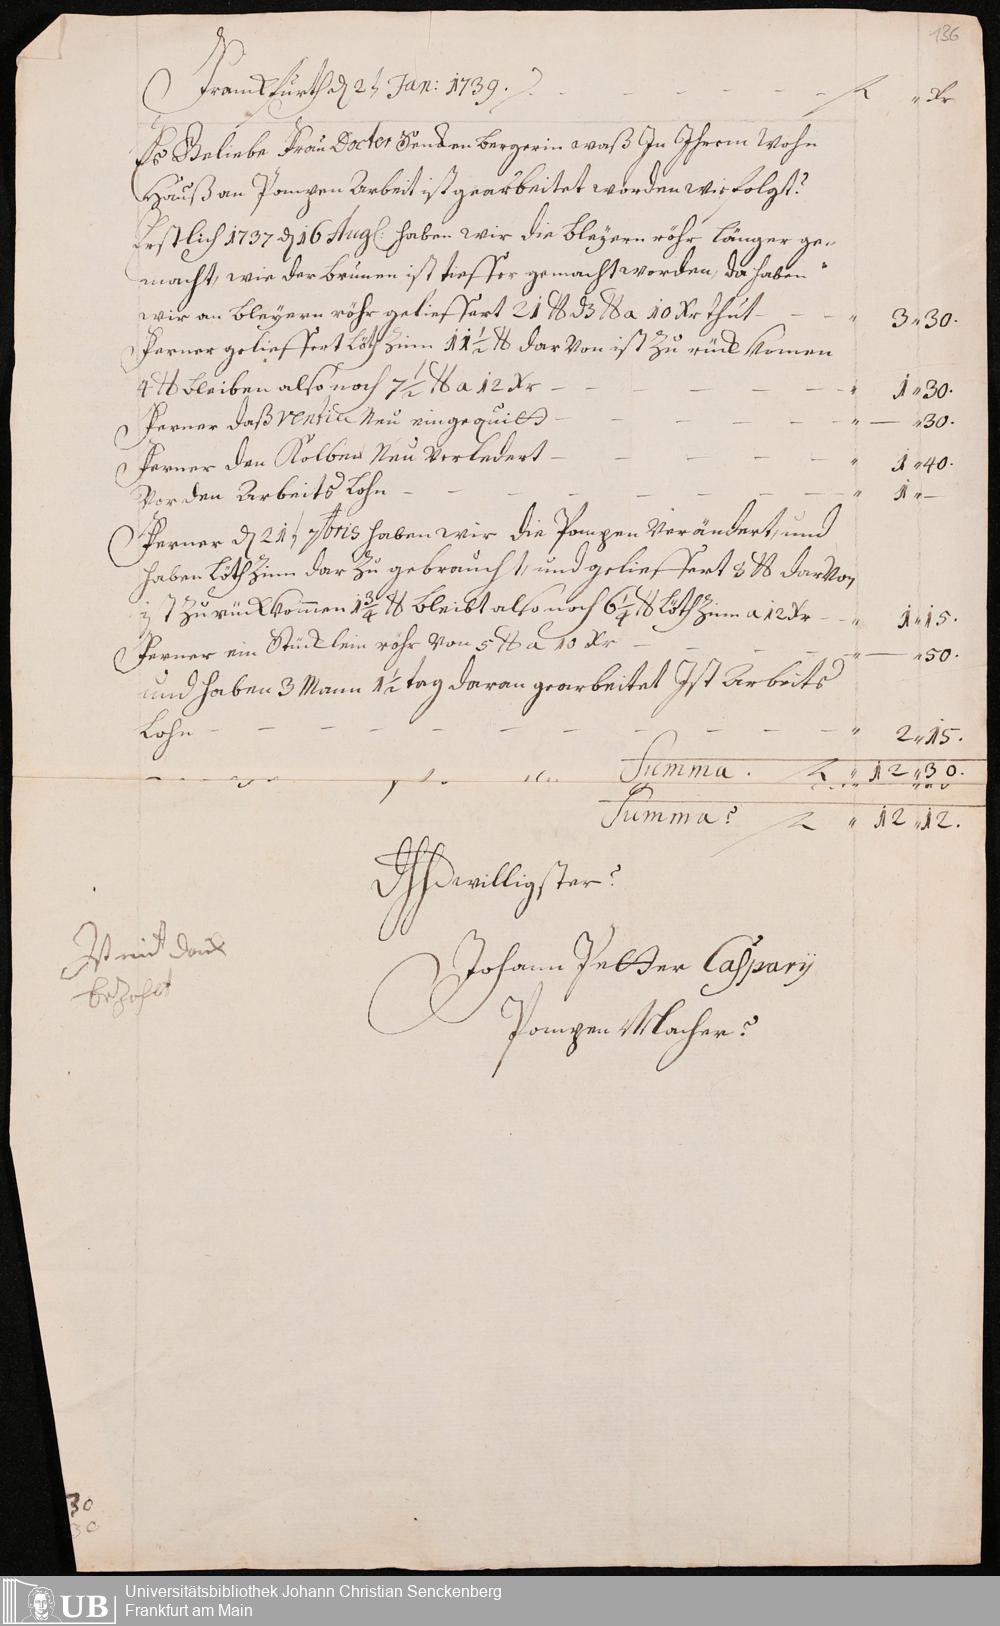 136
Franckfurth d 2t Jan: 1739. fl " Xr
Beliebe Frau Docter Senckenbergerin waß In Ihrem Wohn
Hauß an Pompen Arbeit ist gearbeitet worden wie folgt
Erstlich 1737 d 16 Augl: haben wir die bleÿern röhr länger ge-
macht, wie der brunen ist tieffer gemacht worden, da haben
wir an bleyern röhr geliefert 21 ℔ d3 ℔ a 10 Xr thut - - - " 3 " 30.
Ferner geliefert Löth Zinn 11 1/2 ℔ dar Von ist Zu rück komen
4 ℔ bleiben also noch 7 1/2 ℔ a 12 Xr - - - " 1 " 30.
Ferner daß Ventil Neu eingequilt - - - " — " 30.
Ferner den Kolben Neu Verledert - - - " 1 " 40.
Vor den Arbeits Lohn - - - " 1 " —
Ferner d 21t 7bris haben wir die Pompen Verändert, und
haben Löth Zinn dar Zu gebraucht, und geliefert 8 ℔ dar Von
ist Zu rück kommen 1 3/4 ℔ bleibt also noch 6 1/4 ℔ Löth Zinn a 12 Xr - " 1 " 15.
Ferner ein Stücklein röhr Von 5 ℔ a 10 Xr - - - " — " 50.
und haben 3 Mann 1 1/2 tag daran gearbeitet Ist Arbeits
Lohn - - - " 2 " 15.
Summa. fl " 12 " 30.
Summa fl " 12 " 12.
Dhhl willigster
Johann Petter Casparÿ
Pompen Macher
Ist mit danck
bezahlt
30
30
UB
Universitätsbibliothek Johann Christian Senckenberg
Frankfurt am Main